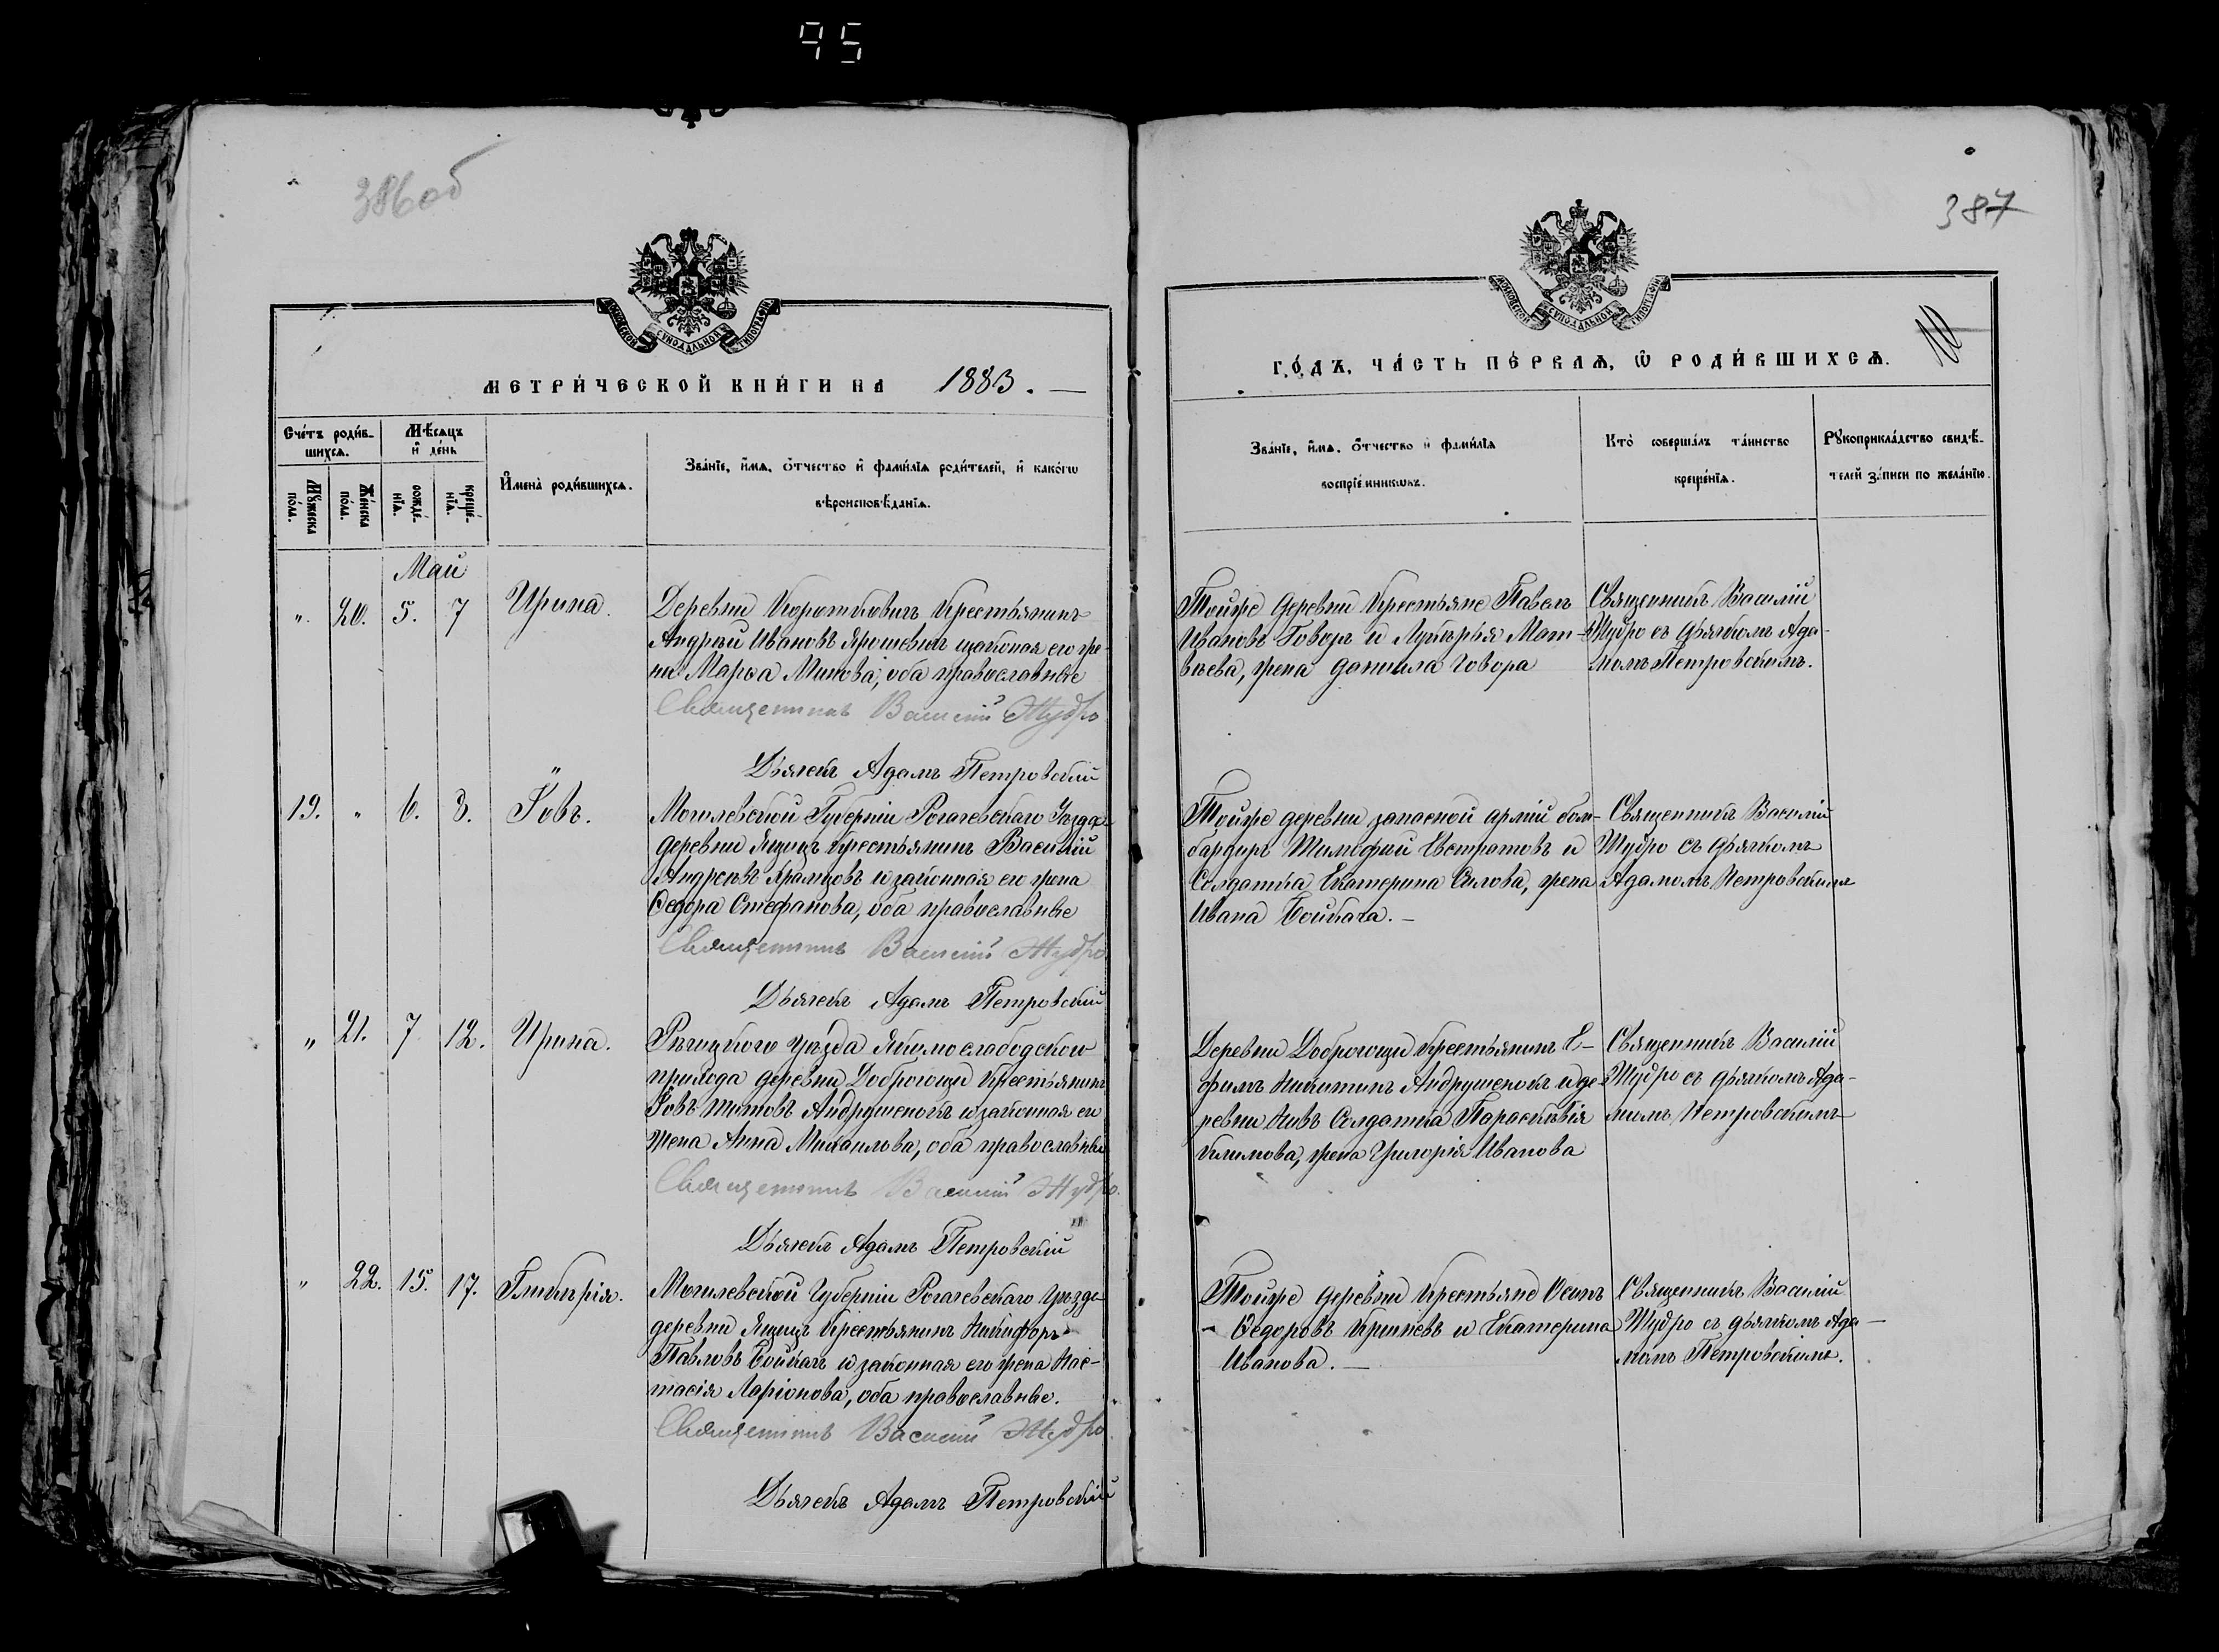 95
386об
387
10
МОСКОВСКОЙ СѴНОДАЛЬНОЙ ТИПОГРАФІИ
МОСКОВСКОЙ СѴНОДАЛЬНОЙ ТИПОГРАФІИ
МЕТРИ́ЧЕСКОЙ КНИ́ГИ НА 1883. —
ГО́ДЪ, ЧА́СТЬ ПЕ́РВАѦ, Ѡ҆ РОДИ́ВШИХСѦ.
Сче́тъ роди́в-
шихсѧ.
Мѣ́сѧцъ
и҆ де́нь
Мꙋ́жеска
по́ла.
Же́нска
по́ла.
рожде́-
нїѧ.
креще́-
нїѧ.
И҆мена̀ роди́вшихсѧ.
Зва́нїе, и҆́мѧ, ѻ҆́тчество и҆ фами́лїѧ роди́телей, и҆ како́гѡ
вѣроисповѣ́данїѧ.
Зва́нїе, и҆́мѧ, ѻ҆́тчество и҆ фами́лїѧ
воспрїе́мникѡвъ.
Кто̀ соверша́лъ та́инство
креще́нїѧ.
Рꙋкоприкла́дство свидѣ́-
телей за́писи по жела́нїю.
Май
". 20. 5. 7 Ирина.
Деревни Короткович Крестьянинъ
Андрей Ивановъ Ярошевич и законая его же-
на Марѳа Минова, оба православные
Священникъ Василій Мудро
Дьячекъ Адамъ Петровскій
Тойже деревни Крестьяне Павелъ
Ивановъ Говоръ и Лукерья Мат-
вѣева, жена Данила Говора
Священникъ Василій
Мудро съ дьячкомъ Ада-
момъ Петровскимъ.
19. " 6. 8. Іовъ.
Могилевской Губерніи Рогачевскаго Уѣзда
деревни Ящицъ Крестьянинъ Василій
Андреевъ Храмцовъ и законная его жена
Ѳедора Стефанова, оба православные
Священникъ Василій Мудро
Дьячекъ Адамъ Петровскій
Тойже деревни запасной арміи бом-
бардиръ Тимофий Евстратовъ и
Солдатка Екатерина Силова, жена
Ивана Бойкача. —
Священникъ Василій
Мудро съ дьячкомъ
Адамомъ Петровскимъ
" 21. 7 12. Ирина.
Рѣчицкого уѣзда Якимослободского
прихода деревни Доброгощи Крестьянинъ
Іовъ Титовъ Андрушенокъ и законная его
Жена Анна Михаилова, оба православные
Священникъ Василій Мудро.
Дьячекъ Адамъ Петровскій
Деревни Доброгощи Крестьянинъ Е-
фимъ Никитинъ Андрушенокъ и де-
ревни Нивъ Солдатка Параскевія
Климова, жена Григорія Иванова
Священникъ Василій
Мудро съ дьячкомъ Ада-
момъ Петровскимъ
" 22. 15. 17. Гликерія.
Могилевской Губерніи Рогачевскаго уѣзда
деревни Ящицъ Крестьянинъ Никифоръ
Павловъ Бойкачъ и законная его жена Нас-
тасія Ларіонова, оба православные.
Священникъ Василій Мудро
Дьячекъ Адамъ Петровскій
Тойже деревни Крестьяне Осипъ
Ѳедоровъ и Екатерина
Иванова. —
Священникъ Василій
Мудро съ дьячкомъ Ада-
момъ Петровскимъ.